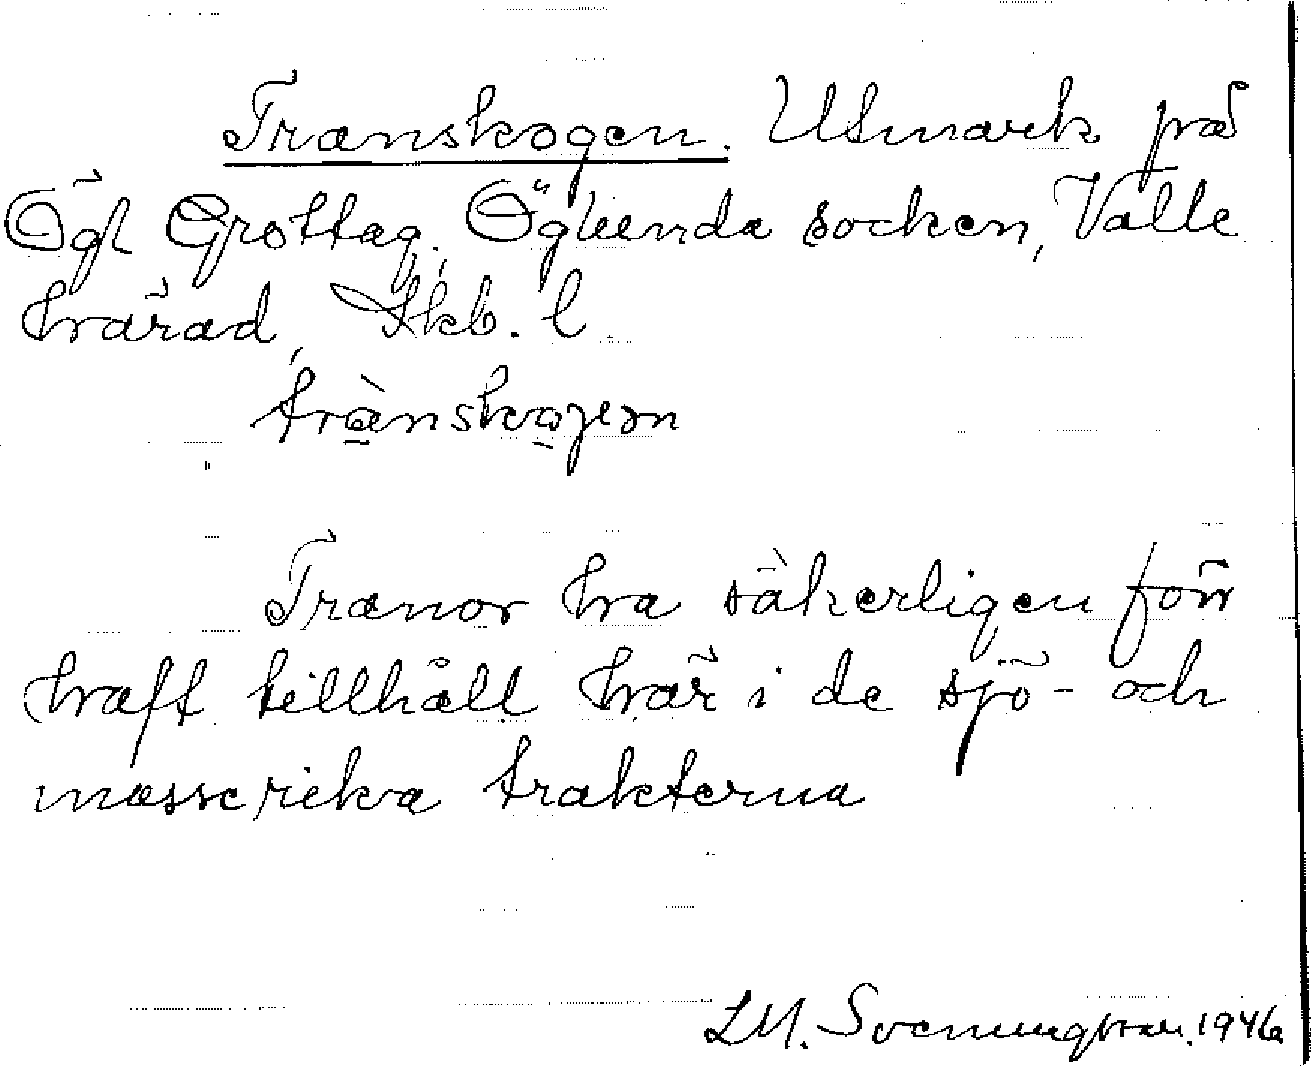 Transkogen. Utmark på
Ögl Grottag, Öglunda socken, Valle
härad, Skb. l.
Tranor ha säkerligen förr
haft tillhåll här i de sjö- och
mosserika trakterna
Svenungsson. 1946